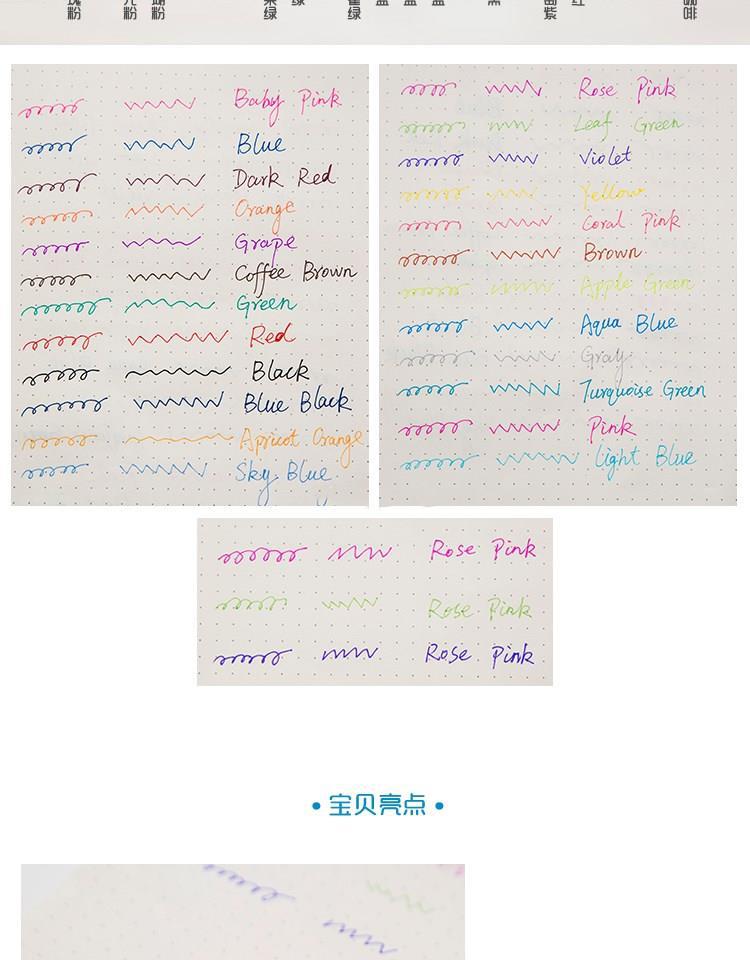 粉
粉
粉
绿
绿
紫
啡
Baby Pink
Blue
Dark Red
Orange
Grape
Coffee Brown
Green
Red
Black
Blue Black
Apricot Orange
Sky Blue
Rose Pink
Leaf Green
Violet
Yellow
Coral Pink
Brown
Apple Green
Aqua Blue
Gray
Turquoise Green
Pink
Light Blue
Rose Pink
Rose Pink
Rose Pink
• 宝贝亮点 •